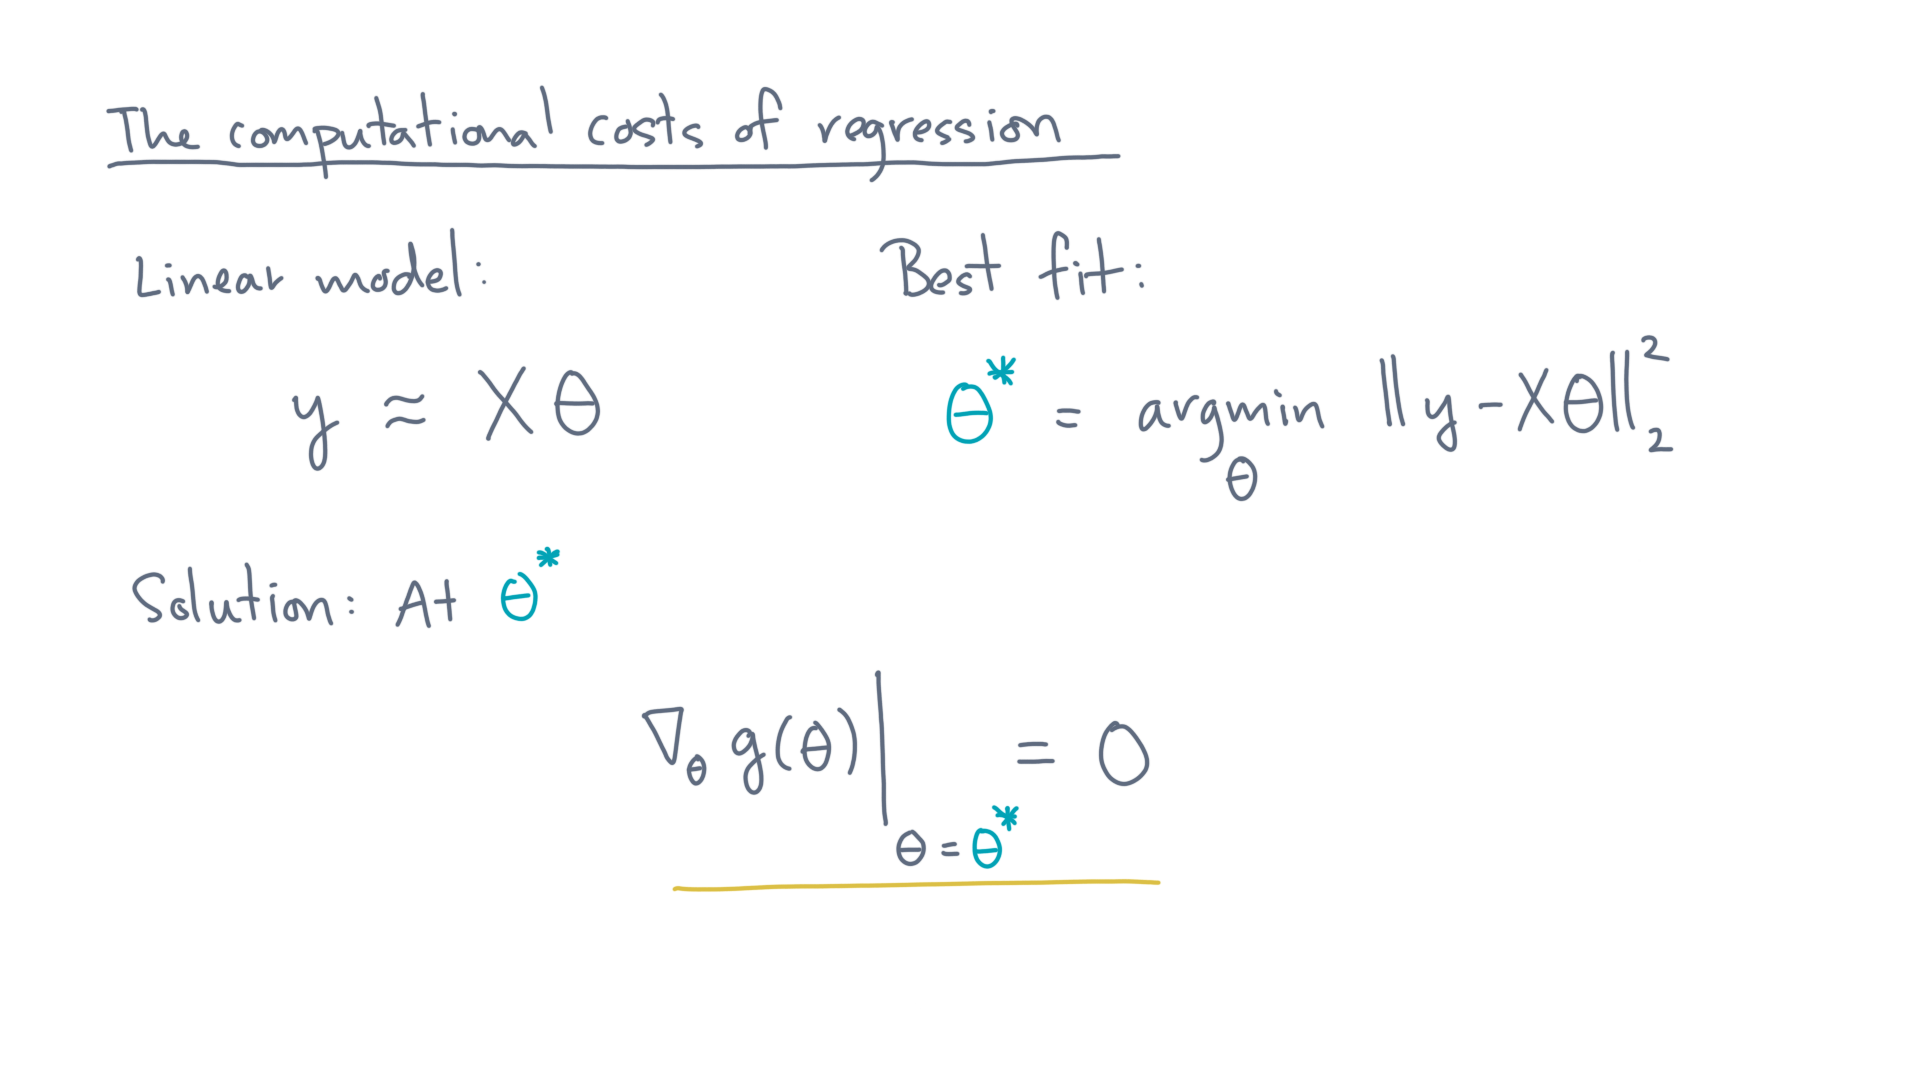 The computational costs of regression
Linear model:
y ≈ Xθ
Best fit:
θ* = argmin_θ ‖y - Xθ‖₂²
Solution: At θ*
∇_θ g(θ)|_{θ = θ*} = 0